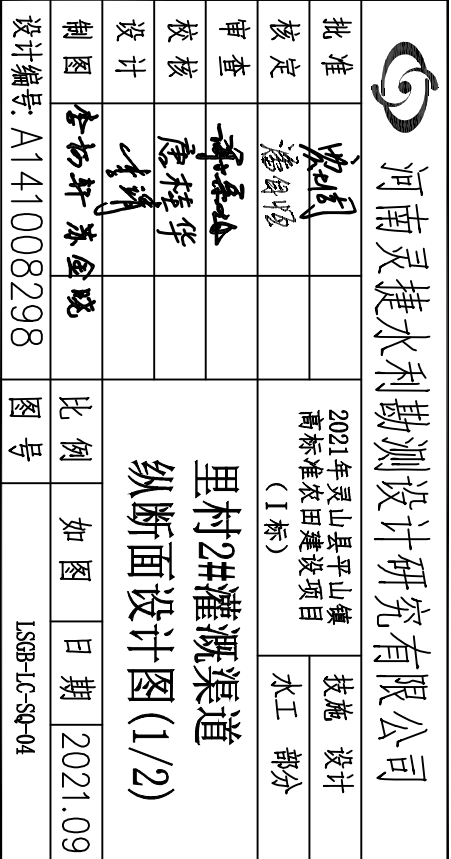 河南灵捷水利勘测设计研究有限公司
批准
核定
审查
校核
设计
制图
设计编号: A141008298
2021年灵山县平山镇
高标准农田建设项目
(Ⅰ标)
技施 设计
水工 部分
里村2#灌溉渠道
纵断面设计图(1/2)
唐桂华
李娟
苏金晓
比例 如图 日期 2021.09
图号 LSGB-LC-SQ-04